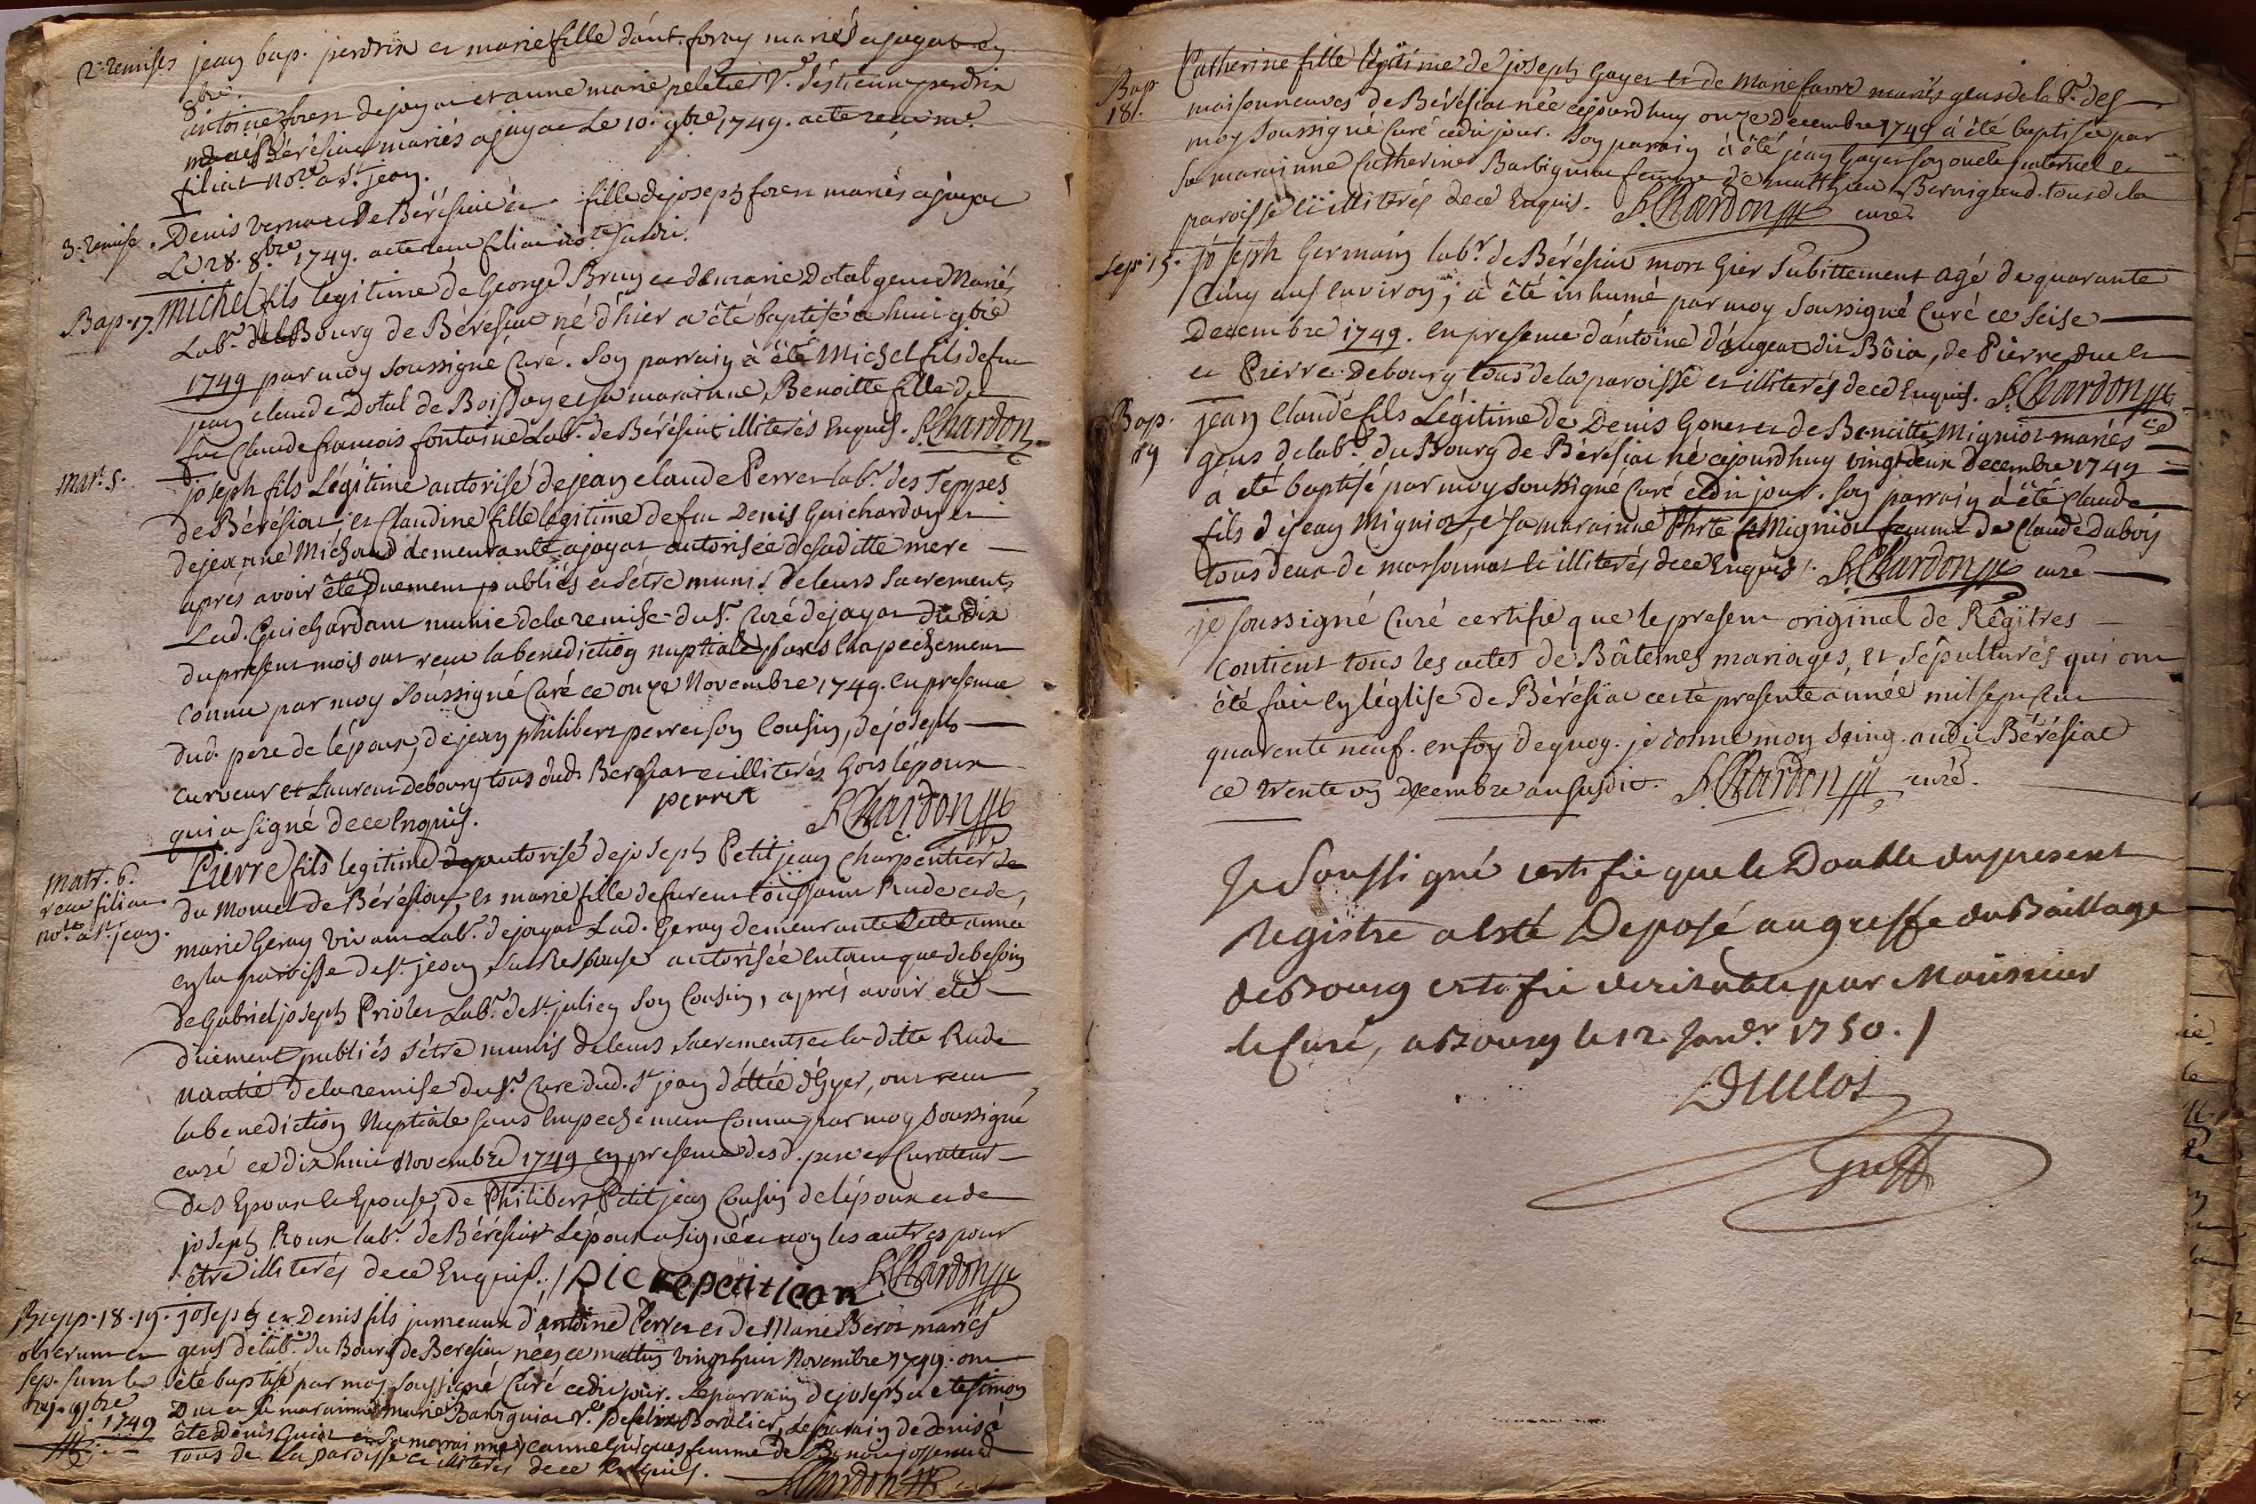 2e remises jean bap. perdrix et marie fille d'ant. foray mariés a jayat en
8bre.
antoine foren de jayac et anne marie peletier Ve. d'estienne perdrix
Bérésiac mariés a jayac Le 10. 9bre 1749. acte receu me.
filiat nore. a St. jean.
3e remise. Denis vernac de Bérésiac et fille de joseph foren mariés a jayac
Le 28. 8bre 1749. acte receu filiat nore
Bap. 17. Michel fils legitime de George Brun et de marie Dotal gens Mariés
Labr. du Bourg de Bérésiac né d'hier a été baptisé ce huit 9bre
1749 par moy soussigné Curé. son parrain à été Michel fils de fu
jean claude Dotal de Boissaye et sa marainne Benoitte fille de
fu Claude francois fontaine Labr. de Bérésiat illiterés Enquis. P. Chardon
Mar. 5. joseph fils Légitime autorisé de jean claude Perret labr. des Teppes
de Bérésiat, et Claudine fille legitime de fu Denis Guichardon et
de jeanne Michaud demeurante a jayat autorisée de sa ditte mere
aprés avoir été duement publiés et s'etre munis de leurs sacrements
Lad. Guichardant munie de la remise du Sr. Curé de jayat du dix
du present mois ont receu la benediction nuptiale sans Empechement
connu par moy soussigné Curé ce onze Novembre 1749. en presence
dud. pere de l'époux, de jean philibert perret son Cousin, de joseph
curveur et Laurent debourg tous dud. Beresiat et illiterés hors l'époux
qui a signé de ce Enquis. perret P. Chardon
Matr. 6.
receu filiat
nore. a St. jean.
Pierre fils legitime autorisé de joseph Petitjean Charpentier
du Moncel de Bérésiat, et marie fille de fu Rude et de
marie Geray vivant Labr. de jayat Lad. Geray demeurante
en la paroisse de St. jean, autorisée en tant que de besoin
de Gabriel joseph Priolet Labr. de St. julien son Cousin, aprés avoir été
duement publiés s'étre munis de leurs sacrements et la ditte Rude
nantie de la remise du Sr. Curé dud. St. jean ont receu
la benediction Nuptiale sans Empechement Connu par moy soussigné
curé ce dix huit Novembre 1749 en presence desd. pere et Curateur
des Epoux et Epouse, de Philibert Petitjean Cousin de l'époux et de
joseph Roux labr. de Bérésiat L'époux a signé et non les autres pour
étre illiterés de ce Enquis. pierepetitiean P. Chardon
Bapp. 18. 19.
obierunt et
sep. sunt
9bre
1749
joseph et Denis fils jumeaux d'antoine Perret et de Marie Berot mariés
gens de labr. du Bourg de Beresiat nées ce matin vingt huit Novembre 1749. ont
été baptisé par moy soussigné Curé cedit jour. Le parrain de joseph a ete simon
Duc et sa marainne marie Barbignia Ve. de felix Bordlier, Le parrain de denis à
été Denis Guiot et sa marrainne jeanne Guigues femme de Benoit josserand
tous de La paroisse et illiterés de ce Enquis. P. Chardon
Bap.
18. Catherine fille légitime de joseph Gayer et de Marie favre mariés gens de la Pse. des
maisonneuves de Bérésiat née cejourd'huy onze decembre 1749 à été baptisée par
moy soussigné Curé cedit jour. son parain à été jean Gayer son oncle paternel et
sa marainne Catherine Barbignia femme de matthieu Bernigaud. tous de la
paroisse et illiterés de ce Enquis. P. Chardon curé
Sep. 15. joseph Germain labr. de Bérésiat mort hier subittement agé de quarante
Cinq ans Environ, à été inhumé par moy soussigné Curé ce seise
Decembre 1749. en presence d'antoine d'augeat dit Bôia, de Pierre duc et
et Pierre debourg tous de la paroisse et illiterés de ce Enquis. P. Chardon
Bap.
19 jean Claude fils Légitime de Denis Gonet et de Benoitte Migniot mariés
gens de labr. du Bourg de Bérésiat né cejourd'huy vingt deux Decembre 1749
à été baptisé par moy soussigné Curé cedit jour. son parrain à été Claude
fils de jean Migniot, et sa marainne Phrte Migniot femme de Claude Dubois
tous deux de marsonnat et illiterés de ce Enquis. P. Chardon curé
je soussigné Curé certifie que le present original de Régîtres
contient tous les actes de Bâtemes mariages, et Sépultures qui ont
été fait en l'église de Bérésiat cette presente année mil sept cent
quarente neuf. en foy de quoy. je donne mon seing. audit Bérésiat
ce trente un Decembre an susdit. P. Chardon curé.
Je Soussigné certifie que le Double du present
Registre a esté Deposé au greffe du Baillage
de Bourg certifié veritable par Monsieur
le Curé, a Bourg le 12. Janr. 1750. /
Duclos
Greff